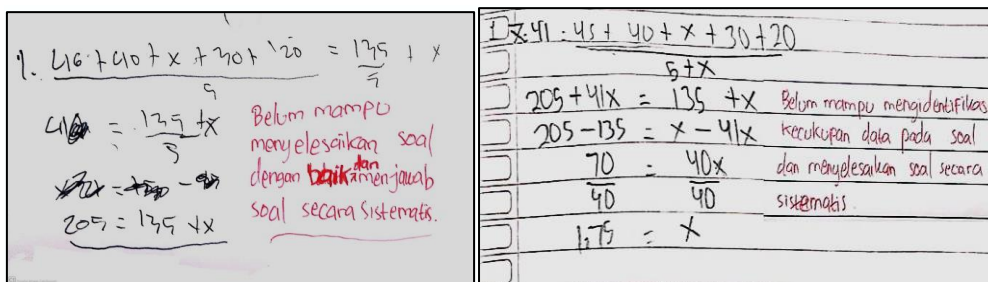 1. 46 + 40 + x + 30 + 20 = 135 + x
5 5
41 = 135 + x
5
205 = 135 + x
Belum mampu
menyelesaikan soal
dengan baik dan menjawab
soal secara sistematis.
1. x̄. 41 = 45 + 40 + x + 30 + 20
5 + x
205 + 41x = 135 + x
205 - 135 = x - 41x
70 = 40x
40 40
1,75 = x
Belum mampu mengidentifikas
kecukupan data pada soal
dan menyelesaikan soal secara
sistematis.